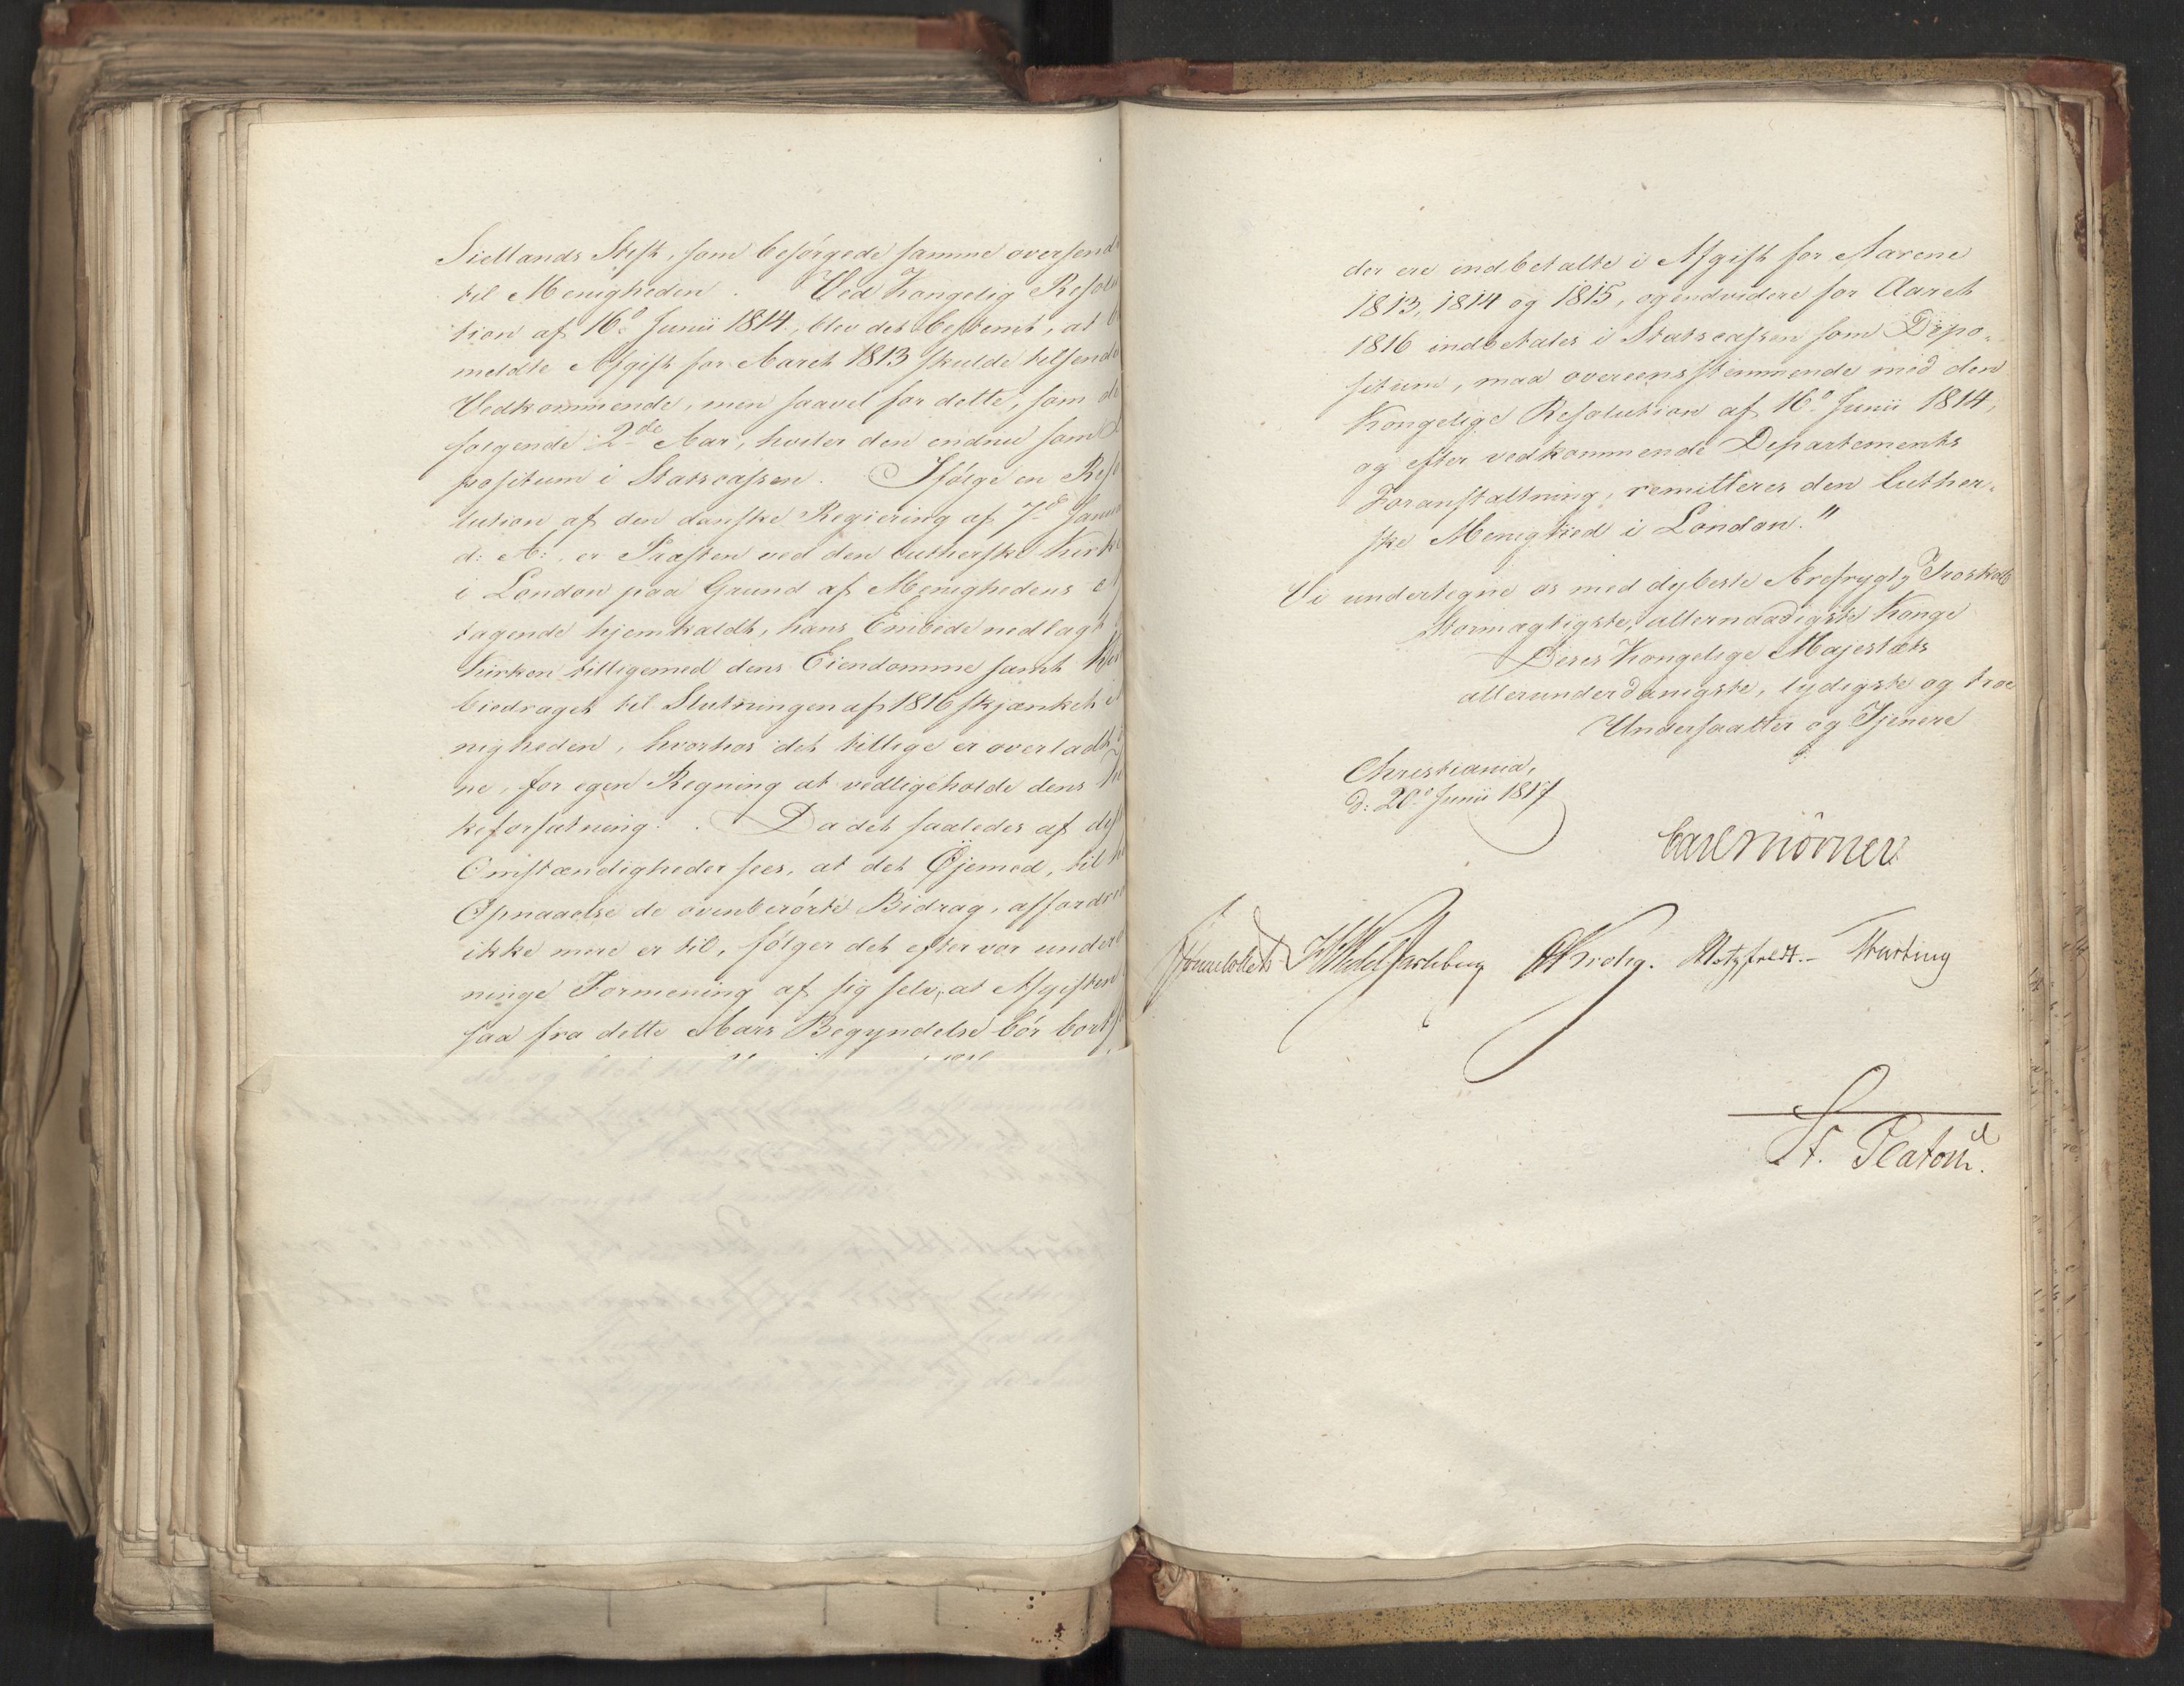 Siellands Stift, som besørgede samme oversend
til Menigheden. Ved Kongelig Resolu
tion af 16d Junii 1814, blev det bestemt, at b
meldte Afgift for Aaret 1813 skulde tilsende
Vedkommende, men saavel for dette, som de
følgende 2de Aar, hviler den endnu som D
positum i Statscassen. Ifølge en Reso
lution af den danske Regiering af 7d Janu
d: A:, er Præsten ved den lutherske Kirke
i London paa Grund af Menighedens
tagende hjemkaldt, hans Embede nedlagt
Kirken tilligemed dens Eiendomme samt
bidraget til Slutningen af 1816 skjænket
nigheden, hvorhos det tillige er overladt
ne, for egen Regning at vedligeholde dens
keforfatning. Da det saaledes af diss
Omstændigheder sees, at det Øjemed, til
Opnaaelse de ovenberørte Bidrag, affordre
ikke mere er til, følger det efter vor under
ninge Formening af sig selv, at Afgiften
saa fra dette Aars Begyndelse bør bort
der ere indbetalte i Afgift for Aarene
1813, 1814 og 1815, og endvidere for Aaret
1816 indbetales i Statscassen som Depo-
situm, maa overeensstemmende med den
Kongelige Resolution af 16d Junii 1814,
og efter vedkommende Departements
Foranstaltning, remitteres den luther-
ske Menighed i London."
Vi undertegne os med dybeste Ærefrygt, Troskab
Stormægtigste, allernaadigste Konge
Deres Kongelige Majestæts
allerunderdanigste, lydigste og troe
Undersaatter og Tjenere
Christiania,
d: 20d Junii 1817
Carl Mörner
Sommerhielm Wedel Jarlsberg Krohg. Motzfeldt.- Harbing
St. Platou